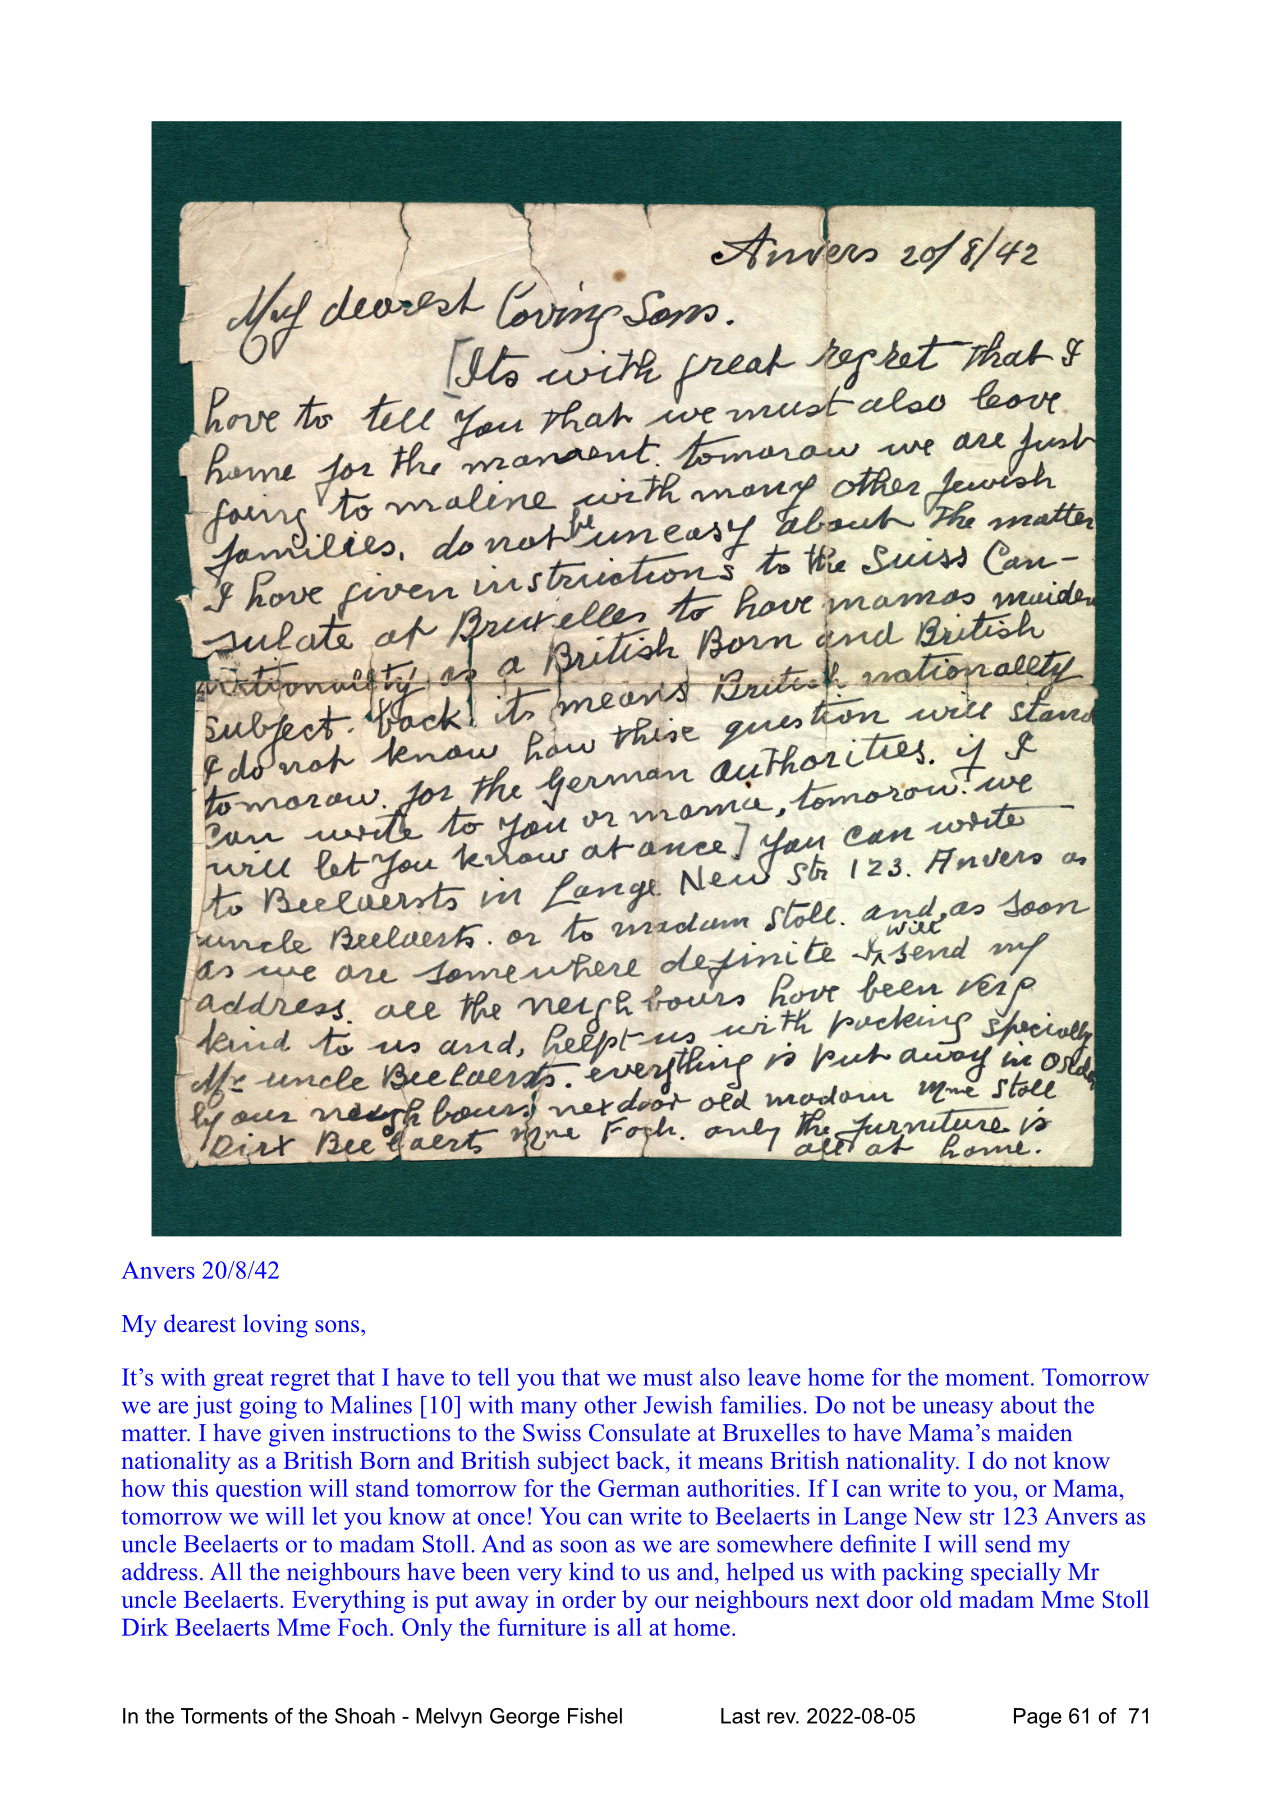 Anvers 20/8/42
My dearest loving Sons.
[Its with great regret that I
have to tell you that we must also leave
home for the moment. tomorow we are just
going to maline with many other Jewish
families. do not be uneasy about the matter
I have given instructions to the Suiss Con-
sulate at Bruxelles to have mamas maiden
nationality as a British Born and British
subject. back. its means British nationallty
I do not know how thise question will stand
tomorow. for the German authorities. if I
can write to you or mama, tomorow. we
will let you know at once] you can write
to Beelaersts in Lange New Str 123. Anvers as
uncle Beelaerts. or to madam Stoll. and, as soon
as we are somewhere definite I will send my
address. all the neighbours have been very
kind to us and, helpt us with packing specially
Mr uncle Beelaersts. everything is put away in
by our neighbours next door old madam Mme Stoll
Dirk Beelaerts Mme Foch. only the furniture is
all at home.
Anvers 20/8/42
My dearest loving sons,
It’s with great regret that I have to tell you that we must also leave home for the moment. Tomorrow
we are just going to Malines [10] with many other Jewish families. Do not be uneasy about the
matter. I have given instructions to the Swiss Consulate at Bruxelles to have Mama’s maiden
nationality as a British Born and British subject back, it means British nationality. I do not know
how this question will stand tomorrow for the German authorities. If I can write to you, or Mama,
tomorrow we will let you know at once! You can write to Beelaerts in Lange New str 123 Anvers as
uncle Beelaerts or to madam Stoll. And as soon as we are somewhere definite I will send my
address. All the neighbours have been very kind to us and, helped us with packing specially Mr
uncle Beelaerts. Everything is put away in order by our neighbours next door old madam Mme Stoll
Dirk Beelaerts Mme Foch. Only the furniture is all at home.
In the Torments of the Shoah - Melvyn George Fishel Last rev. 2022-08-05 Page 61 of 71